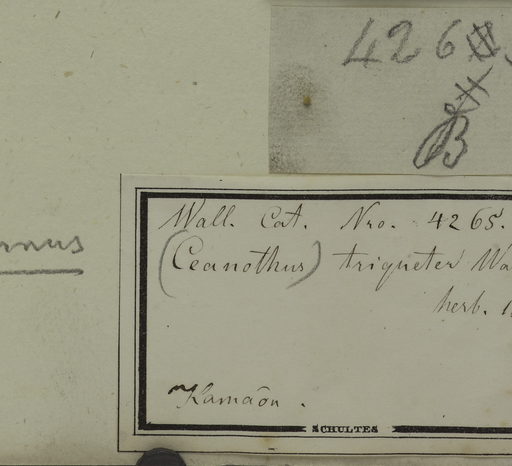 426
B
Wall. Cat. Nro. 4265.
(Ceanothus) triqueter Wa
herb.
Kamaōn.
SCHULTES